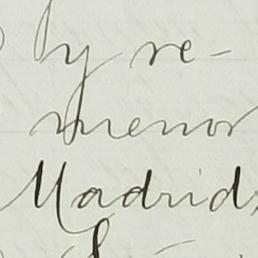 by re-
menor
Madrid,